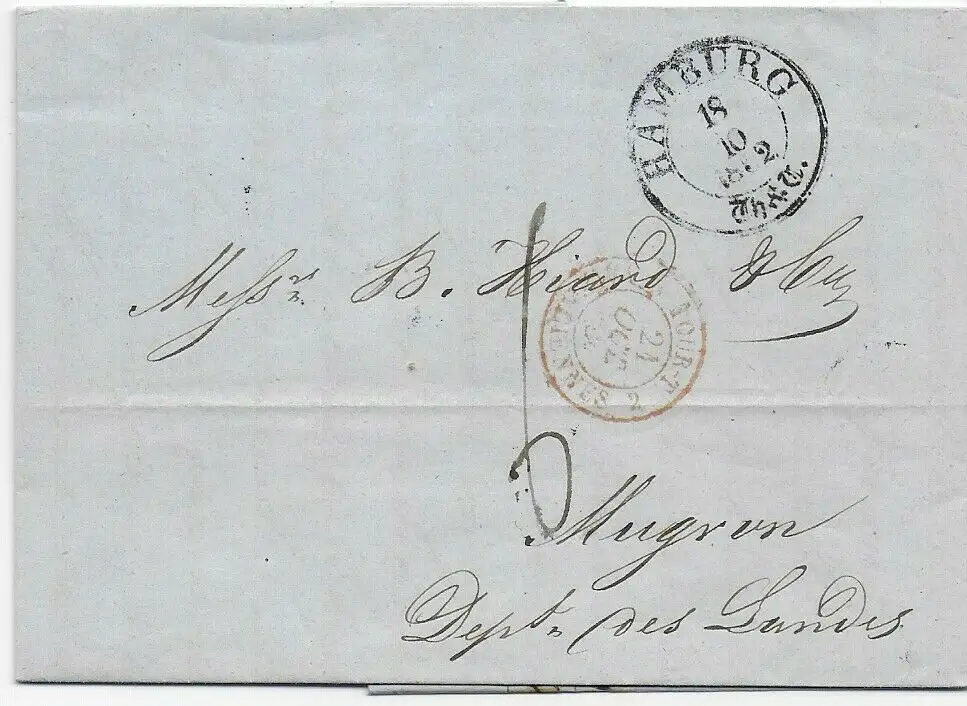 HAMBURG
18
10
Th.& T.
Messrs. B. Hiard & Cie
TOUR-T
21
OCT.
2
Mugron
Dept. des Landes